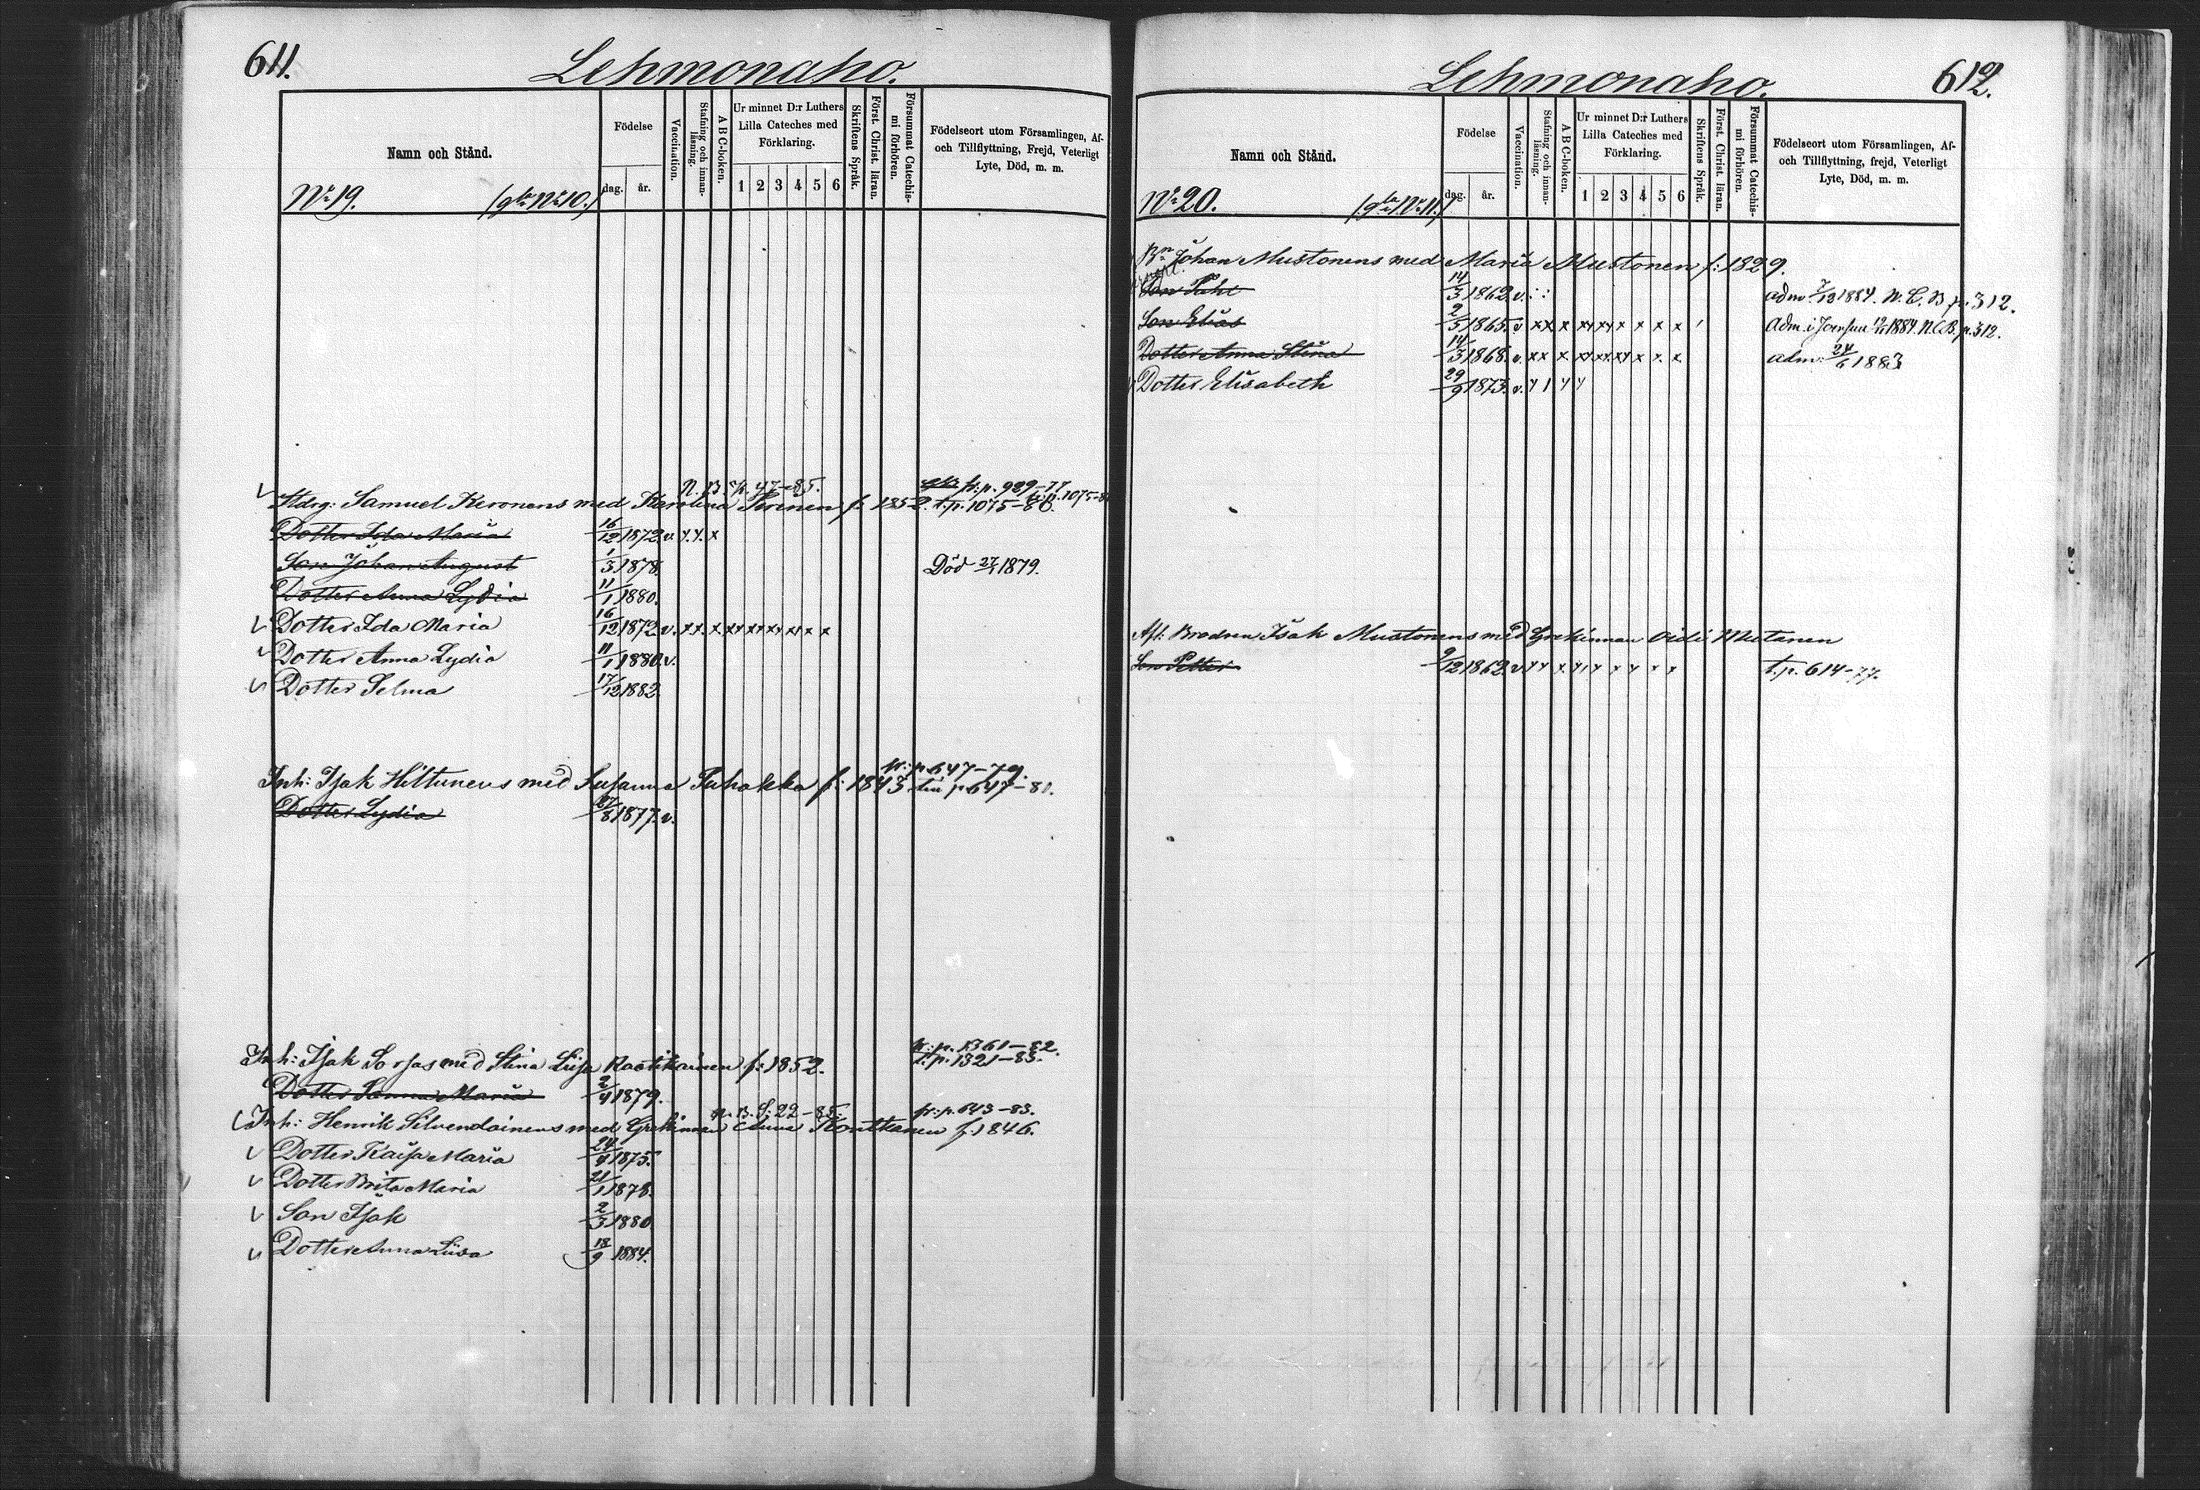 611.
Lehmonaho.
Namn och Stånd.
Födelse
dag. år.
Vaccination.
Stafning och innan-läsning.
A B C-boken.
Ur minnet D:r Luthers Lilla Cateches med Förklaring.
1 2 3 4 5 6
Skriftens Språk.
Först. Christ. läran.
Försummat Catechis-mi förhören.
Födelseort utom Församlingen, Af-
och Tillflyttning, Frejd, Veterligt
Lyte, Död, m. m.
No 19. (gla No 10.)
N.B. p. 47-85. fr. p. 989-77
Samuel Keronens med Karolina f: 1852. t. p. 1075-86.
Dotter Ida Maria 16/12 1872 v. x x x
Son Johan August 1/3 1878. Död 27/1 1879.
Dotter Anna Lydia 11/1 1880.
Dotter Ida Maria 16/12 1872 v. x x. x xx xx xx xx x x
Dotter Anna Lydia 11/1 1880. v.
Dotter Selma 17/12 1882.
fr. p. 647-79.
Inh: Isak Hiltunens med Susanna Puhakka f: 1843 p 647-80.
Dotter Lydia 27/8 1877. v.
fr. p. 1361-82.
Inh: Isak Sorsas med Stina Lisa f: 1852. t. p. 1321-83.
Dotter Sanna Maria 2/4 1879.
N. B. S. 22-85. fr. p. 643-83.
Inh: Henrik Silvendoinens med Grekinnan Anna Kontkanen f. 1846.
Dotter Kaisa Maria 24/4 1875.
Dotter Brita Maria 21/1 1878.
Son Isak 2/3 1880
Dotter Anna Liisa 18/9 1884.
612.
Lehmonaho.
Namn och Stånd.
Födelse
dag. år.
Vaccination.
Stafning och innan-läsning.
A B C-boken.
Ur minnet D:r Luthers Lilla Cateches med Förklaring.
1 2 3 4 5 6
Skriftens Språk.
Först. Christ. läran.
Försummat Catechis-mi förhören.
Födelseort utom Församlingen, Af-
och Tillflyttning, frejd, Veterligt
Lyte, Död, m. m.
No 20. (gla No 11.)
Bn Johan Mustonens med Maria Mustonen f: 1829.
Son 14/3 1862 v. : : adm. 1884. N. C. B. p. 312.
Son Elias 2/5 1865. v xx x xx xx x x x x adm. i Joensuu 1884. N. C. B. p. 312.
Dotter Anna Stina 14/3 1868. v. xx x xx xx xx x x. x adm: 24/6 1883
Dotter Elisabeth 29/9 1873. v.
Afl. Brodren Isak Mustonens med Grekinnan
Son Petter 9/12 1862. v. t. p. 614-77.